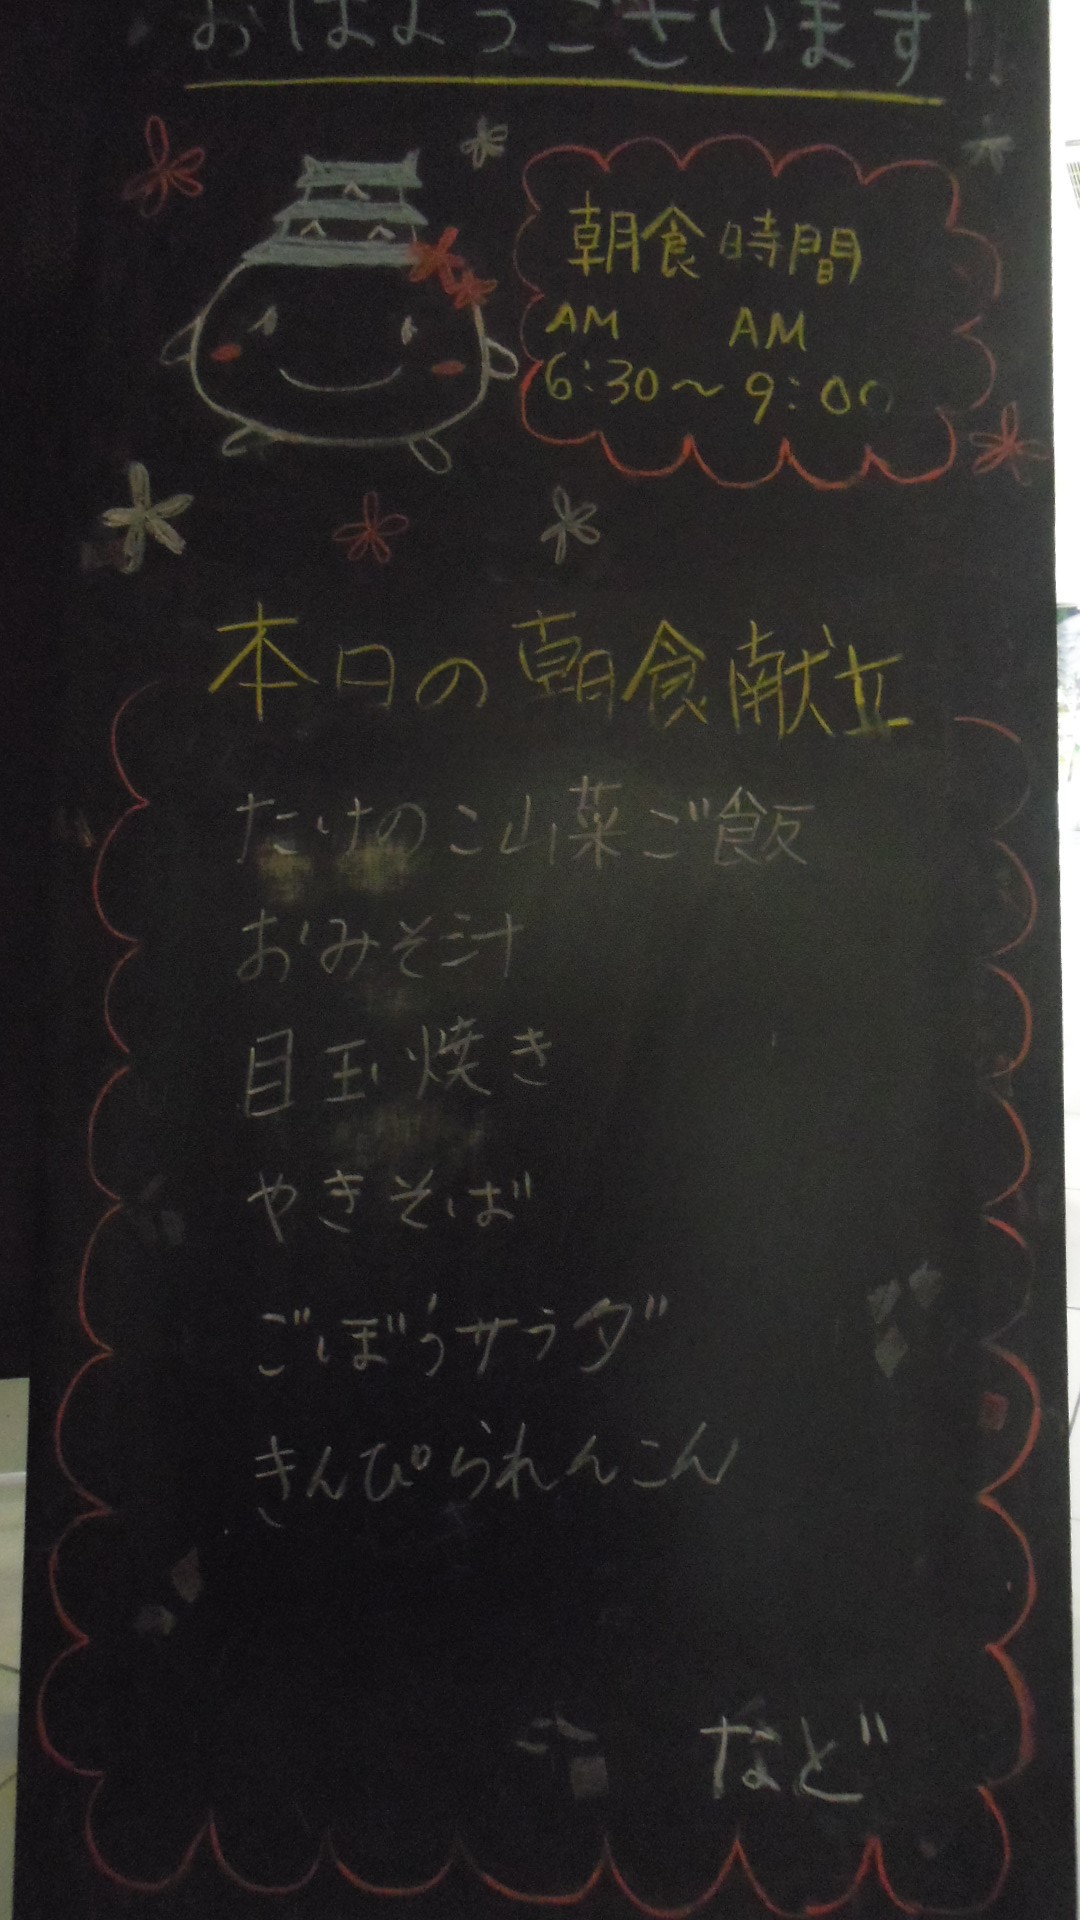 おはようございます!!
朝食時間
AM AM
6:30～9:00
本日の朝食献立
たけのこ山菜ご飯
おみそ汁
目玉焼き
やきそば
ごぼうサラダ
きんぴられんこん
など